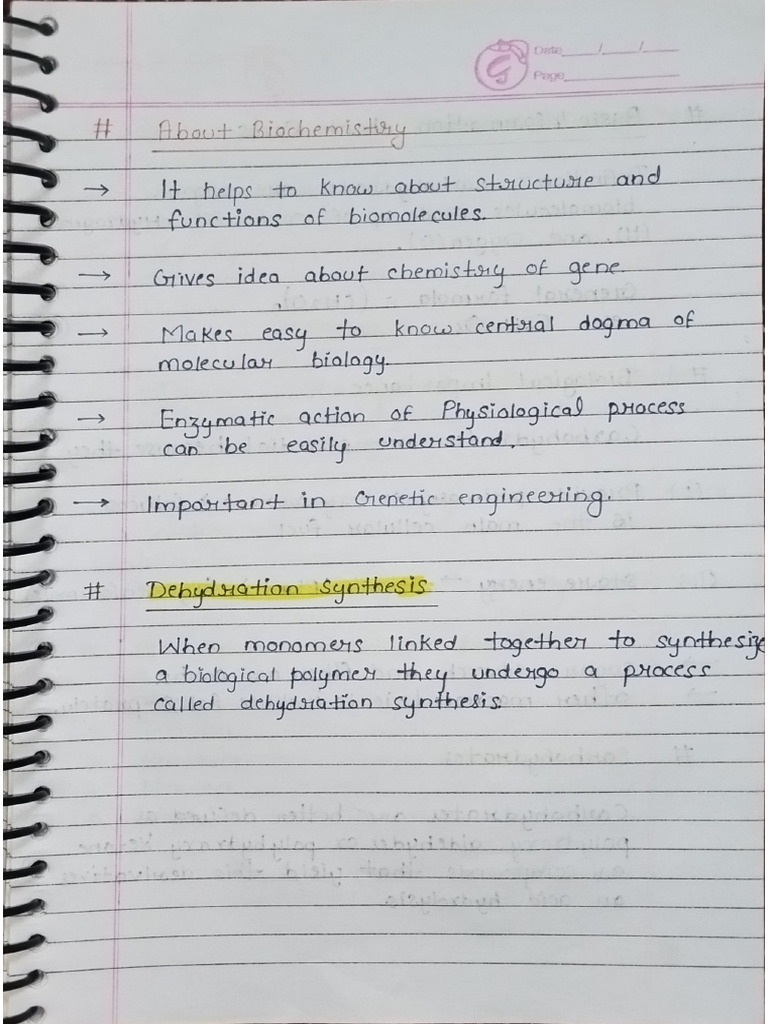 Date / /
Page
# About Biochemistry
→ It helps to know about structure and
functions of biomolecules.
→ Gives idea about chemistry of gene.
→ Makes easy to know central dogma of
molecular biology.
→ Enzymatic action of Physiological process
can be easily understand.
→ Important in Genetic engineering.
# Dehydration Synthesis
When monomers linked together to synthesize
a biological polymer they undergo a process
called dehydration synthesis